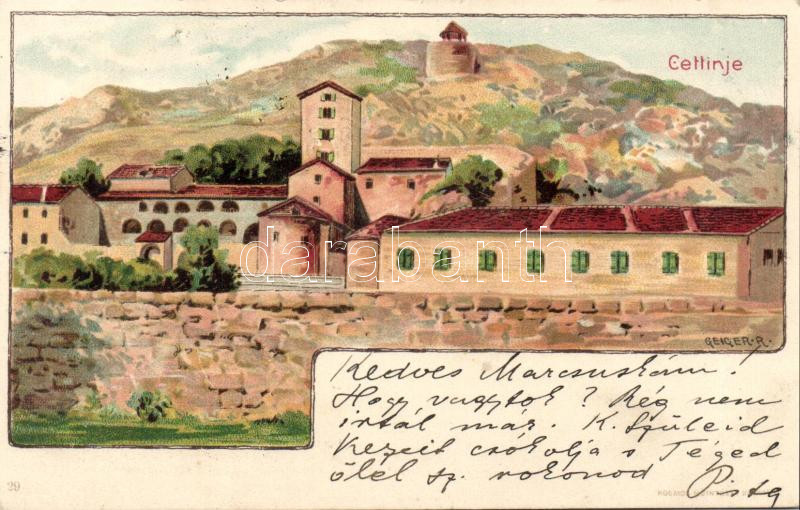 Cettinje
darabanth
GEIGER. R.
Kedves Marcsuskám!
Hogy vagytok? Rég nem
írtál már. K. Szüleid
kezeit csókolja s Téged
ölel sz. rokonod Pista
29
KOSMOS